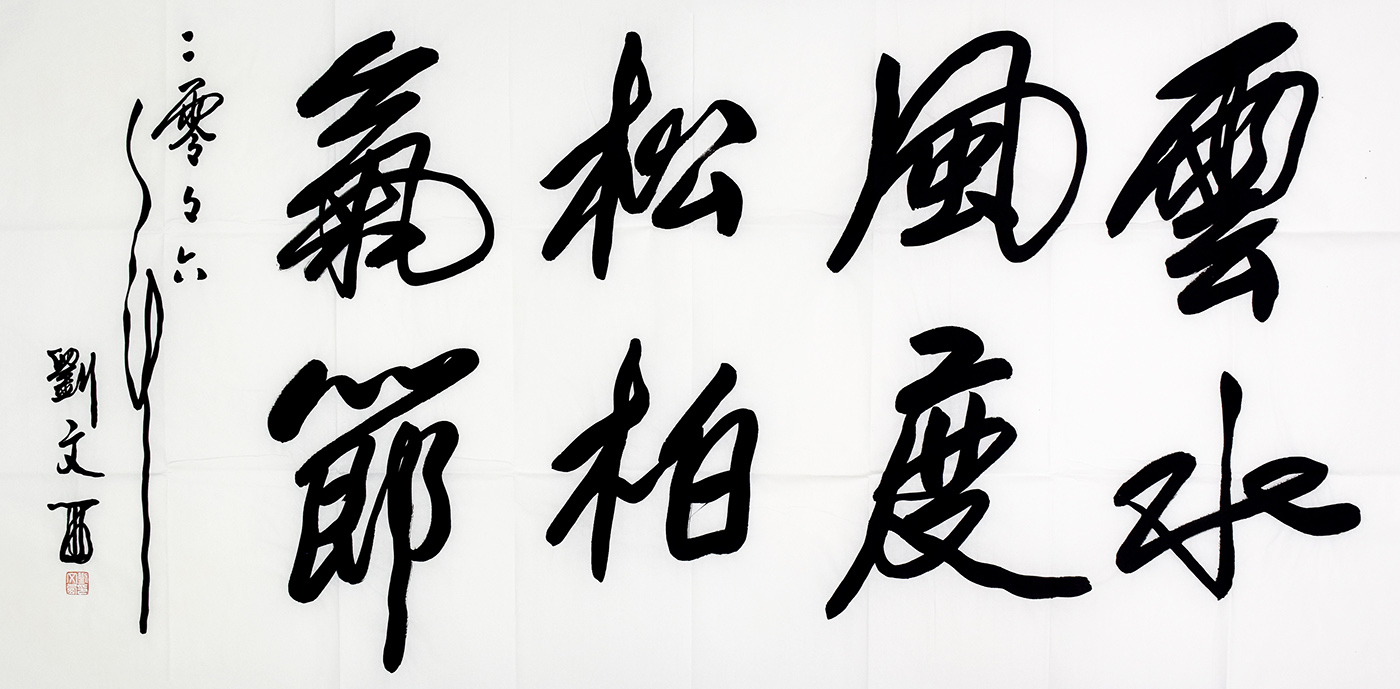 雲水
風度
松柏
氣節
二零々六年
劉文西